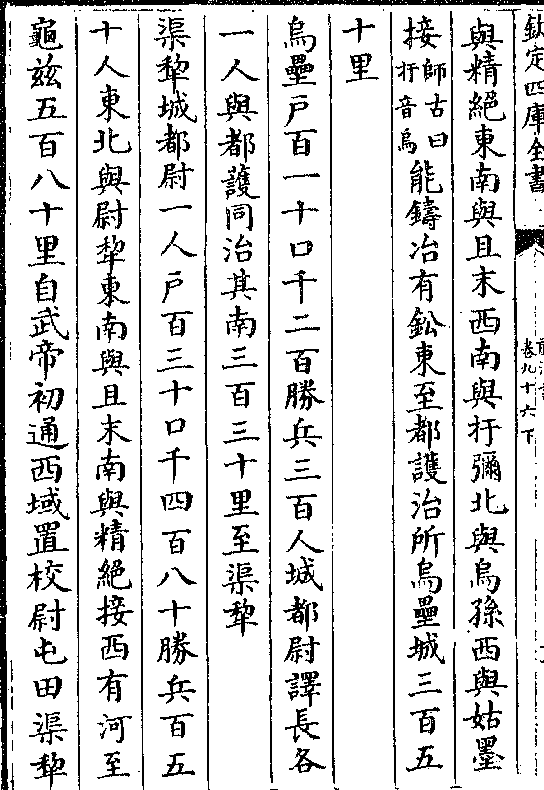 欽定四庫全書
卷九十六下
與精絕東南與且末西南與扜彌北與烏孫西與姑墨
接師古曰扜音烏能鑄冶有鈆東至都護治所烏壘城三百五
十里
烏壘戶百一十口千二百勝兵三百人城都尉譯長各
一人與都護同治其南三百三十里至渠犂
渠犂城都尉一人戶百三十口千四百八十勝兵百五
十人東北與尉犂東南與且末南與精絕接西有河至
龜兹五百八十里自武帝初通西域置校尉屯田渠犂